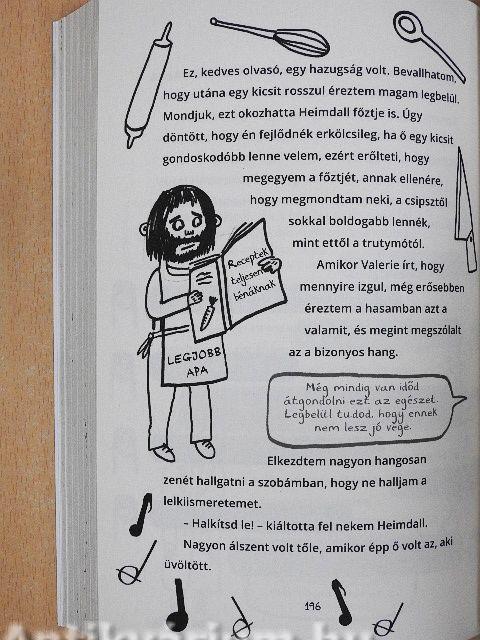 Ez, kedves olvasó, egy hazugság volt. Bevallhatom,
hogy utána egy kicsit rosszul éreztem magam legbelül.
Mondjuk, ezt okozhatta Heimdall főztje is. Úgy
döntött, hogy én fejlődnék erkölcsileg, ha ő egy kicsit
gondoskodóbb lenne velem, ezért erőlteti, hogy
megegyem a főztjét, annak ellenére,
hogy megmondtam neki, a csipsztől
sokkal boldogabb lennék,
mint ettől a trutymótól.
Receptek
teljesen
bénáknak
LEGJOBB
APA
Amikor Valerie írt, hogy
mennyire izgul, még erősebben
éreztem a hasamban azt a
valamit, és megint megszólalt
az a bizonyos hang.
Még mindig van időd
átgondolni ezt az egészet.
Legbelül tudod, hogy ennek
nem lesz jó vége.
Elkezdtem nagyon hangosan
zenét hallgatni a szobámban, hogy ne halljam a
lelkiismeretemet.
– Halkítsd le! – kiáltotta fel nekem Heimdall.
Nagyon álszent volt tőle, amikor épp ő volt az, aki
üvöltött.
196
Antikvarium.hu